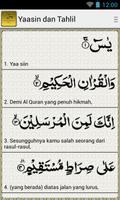 Yaasin dan Tahlil
يٰسٓ ۝١
1. Yaa siin
وَالْقُرْاٰنِ الْحَكِيْمِۙ ۝٢
2. Demi Al Quran yang penuh hikmah,
اِنَّكَ لَمِنَ الْمُرْسَلِيْنَۙ ۝٣
3. Sesungguhnya kamu salah seorang dari
rasul-rasul,
عَلٰى صِرَاطٍ مُّسْتَقِيْمٍۗ ۝٤
4. (yang berada) diatas jalan yang lurus,